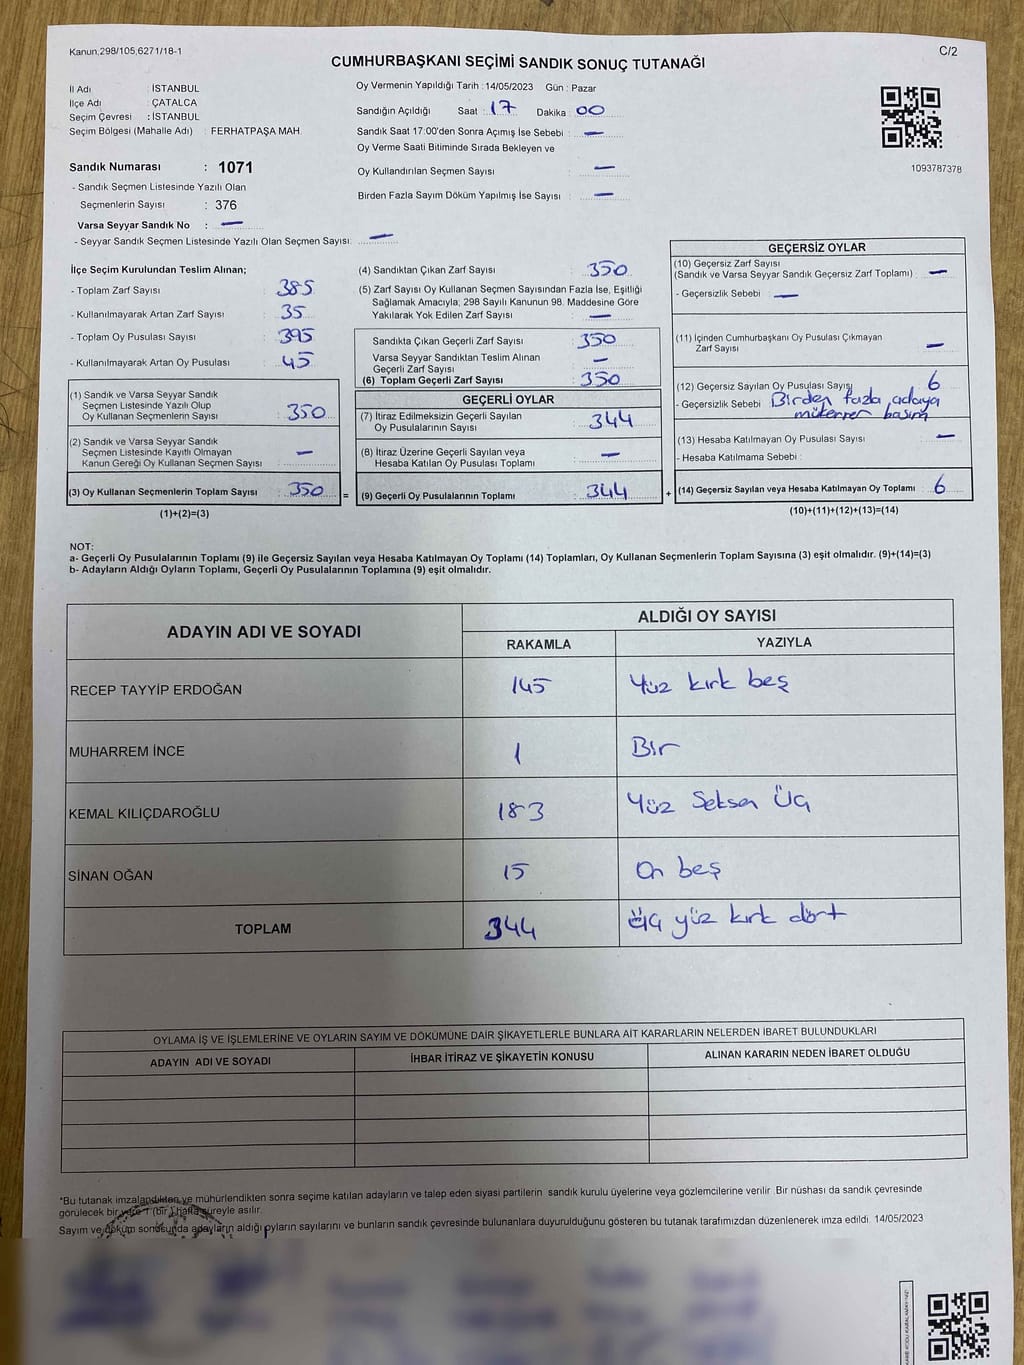 Kanun,298/105,6271/18-1
C/2
CUMHURBAŞKANI SEÇİMİ SANDIK SONUÇ TUTANAĞI
İl Adı : İSTANBUL
İlçe Adı : ÇATALCA
Seçim Çevresi : İSTANBUL
Seçim Bölgesi (Mahalle Adı) : FERHATPAŞA MAH.
Sandık Numarası : 1071
- Sandık Seçmen Listesinde Yazılı Olan
Seçmenlerin Sayısı : 376
Varsa Seyyar Sandık No : —
- Seyyar Sandık Seçmen Listesinde Yazılı Olan Seçmen Sayısı: —
Oy Vermenin Yapıldığı Tarih : 14/05/2023 Gün : Pazar
Sandığın Açıldığı Saat : 17 Dakika : 00
Sandık Saat 17:00'den Sonra Açımış İse Sebebi : —
Oy Verme Saati Bitiminde Sırada Bekleyen ve
Oy Kullandırılan Seçmen Sayısı : —
Birden Fazla Sayım Döküm Yapılmış İse Sayısı : —
1093787378
İlçe Seçim Kurulundan Teslim Alınan;
- Toplam Zarf Sayısı : 385
- Kullanılmayarak Artan Zarf Sayısı : 35
- Toplam Oy Pusulası Sayısı : 395
- Kullanılmayarak Artan Oy Pusulası : 45
(1) Sandık ve Varsa Seyyar Sandık
Seçmen Listesinde Yazılı Olup
Oy Kullanan Seçmenlerin Sayısı : 350
(2) Sandık ve Varsa Seyyar Sandık
Seçmen Listesinde Kayıtlı Olmayan
Kanun Gereği Oy Kullanan Seçmen Sayısı : —
(3) Oy Kullanan Seçmenlerin Toplam Sayısı : 350 =
(1)+(2)=(3)
(4) Sandıktan Çıkan Zarf Sayısı : 350
(5) Zarf Sayısı Oy Kullanan Seçmen Sayısından Fazla İse, Eşitliği
Sağlamak Amacıyla; 298 Sayılı Kanunun 98. Maddesine Göre
Yakılarak Yok Edilen Zarf Sayısı : —
Sandıkta Çıkan Geçerli Zarf Sayısı : 350
Varsa Seyyar Sandıktan Teslim Alınan
Geçerli Zarf Sayısı : —
(6) Toplam Geçerli Zarf Sayısı : 350
GEÇERLİ OYLAR
(7) İtiraz Edilmeksizin Geçerli Sayılan
Oy Pusulalarının Sayısı : 344
(8) İtiraz Üzerine Geçerli Sayılan veya
Hesaba Katılan Oy Pusulası Toplamı : —
(9) Geçerli Oy Pusulalarının Toplamı : 344 +
GEÇERSİZ OYLAR
(10) Geçersiz Zarf Sayısı
(Sandık ve Varsa Seyyar Sandık Geçersiz Zarf Toplamı) : —
- Geçersizlik Sebebi : —
(11) İçinden Cumhurbaşkanı Oy Pusulası Çıkmayan
Zarf Sayısı : —
(12) Geçersiz Sayılan Oy Pusulası Sayısı : 6
- Geçersizlik Sebebi : Birden fazla adaya
mükerrer basım
(13) Hesaba Katılmayan Oy Pusulası Sayısı : —
- Hesaba Katılmama Sebebi :
(14) Geçersiz Sayılan veya Hesaba Katılmayan Oy Toplamı : 6
(10)+(11)+(12)+(13)=(14)
NOT:
a- Geçerli Oy Pusulalarının Toplamı (9) ile Geçersiz Sayılan veya Hesaba Katılmayan Oy Toplamı (14) Toplamları, Oy Kullanan Seçmenlerin Toplam Sayısına (3) eşit olmalıdır. (9)+(14)=(3)
b- Adayların Aldığı Oyların Toplamı, Geçerli Oy Pusulalarının Toplamına (9) eşit olmalıdır.
ADAYIN ADI VE SOYADI ALDIĞI OY SAYISI
RAKAMLA YAZIYLA
RECEP TAYYİP ERDOĞAN 145 Yüz kırk beş
MUHARREM İNCE 1 Bir
KEMAL KILIÇDAROĞLU 183 Yüz Seksen Üç
SİNAN OĞAN 15 On beş
TOPLAM 344 Üç yüz kırk dört
OYLAMA İŞ VE İŞLEMLERİNE VE OYLARIN SAYIM VE DÖKÜMÜNE DAİR ŞİKAYETLERLE BUNLARA AİT KARARLARIN NELERDEN İBARET BULUNDUKLARI
ADAYIN ADI VE SOYADI İHBAR İTİRAZ VE ŞİKAYETİN KONUSU ALINAN KARARIN NEDEN İBARET OLDUĞU
*Bu tutanak imzalandıktan ve mühürlendikten sonra seçime katılan adayların ve talep eden siyasi partilerin sandık kurulu üyelerine veya gözlemcilerine verilir .Bir nüshası da sandık çevresinde
görülecek bir yere 1 (bir ) hafta süreyle asılır.
Sayım ve döküm sonusunda adayların aldığı oyların sayılarını ve bunların sandık çevresinde bulunanlara duyurulduğunu gösteren bu tutanak tarafımızdan düzenlenerek imza edildi. 14/05/2023